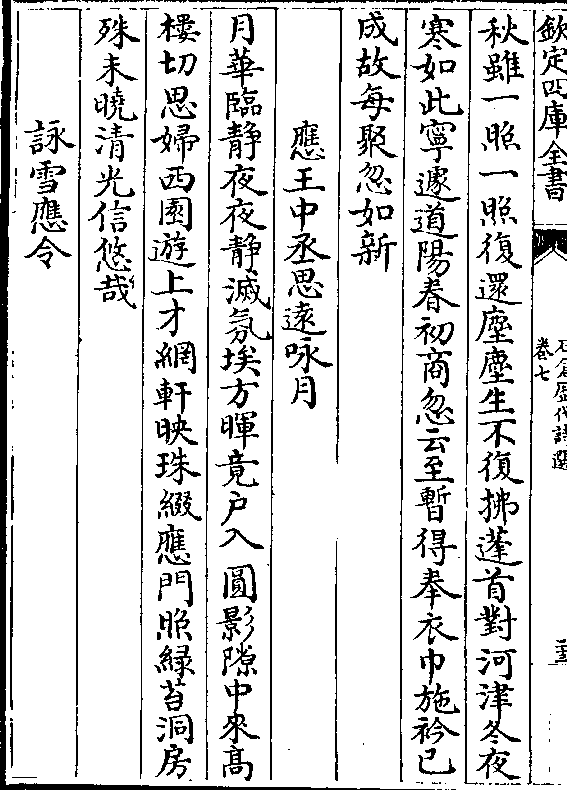 欽定四庫全書
石倉歷代詩選
卷七
秋雖一照一照復還塵塵生不復拂蓬首對河津冬夜
寒如此寧遽道陽春初商忽云至暫得奉衣巾施衿已
成故每聚忽如新
應王中丞思遠咏月
月華臨靜夜夜靜滅氛埃方暉竟户入圓影隙中來髙
樓切思婦西園遊上才網軒映珠綴應門照緑苔洞房
殊未曉清光信悠哉
詠雪應令